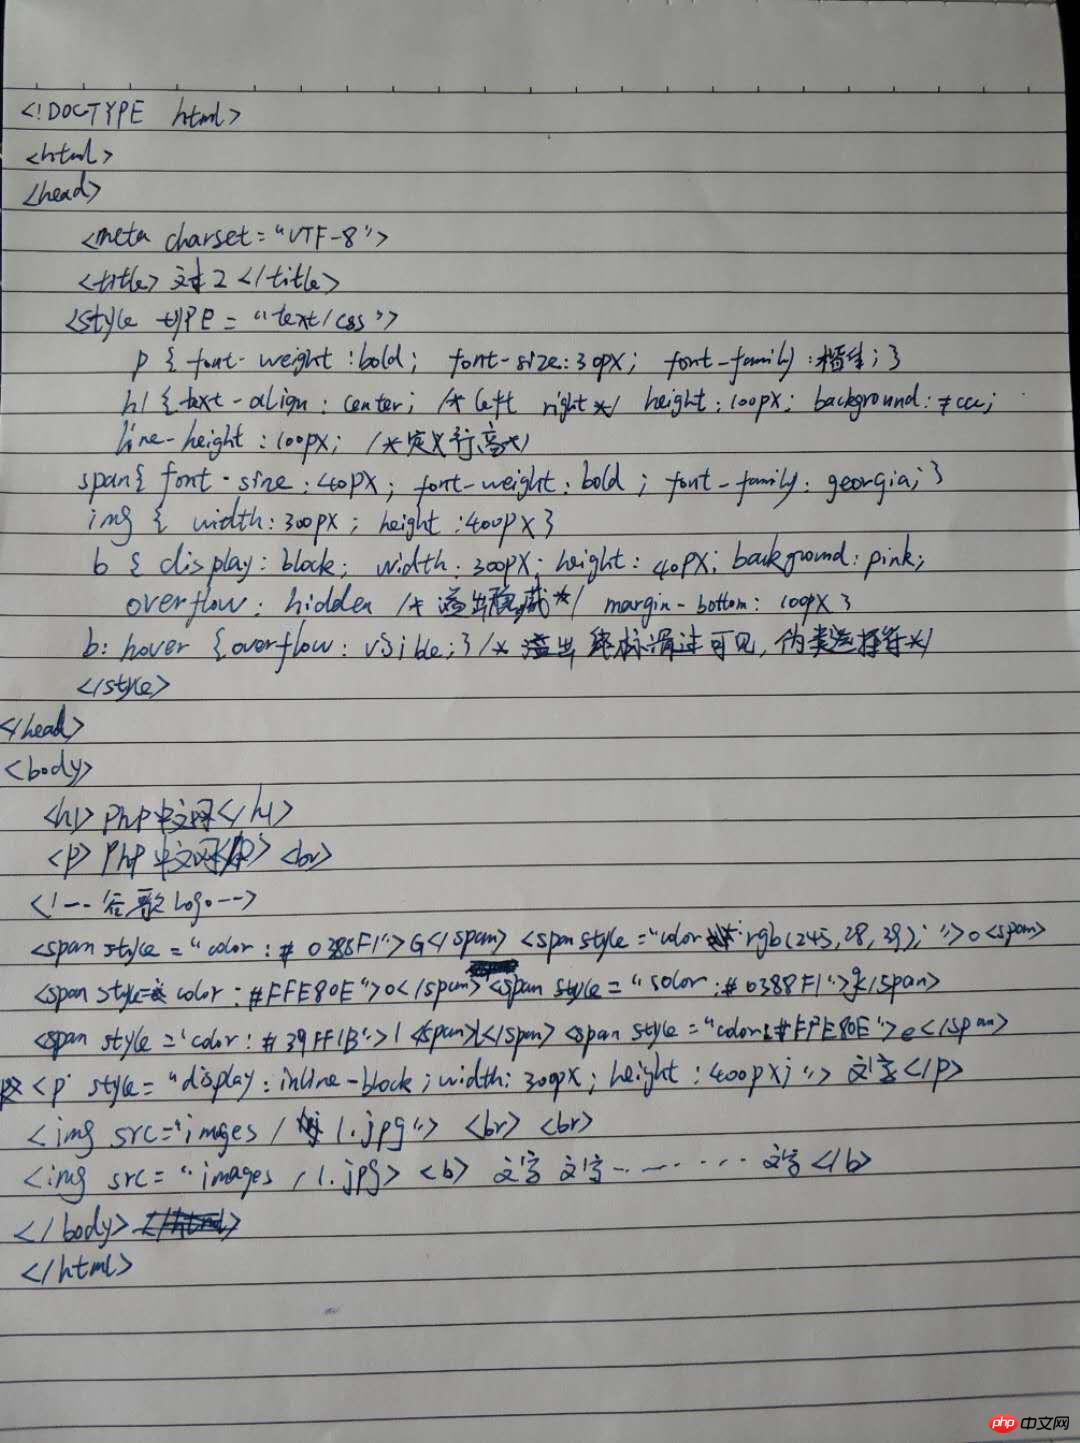 <!DOCTYPE html>
<html>
<head>
<meta charset="UTF-8">
<title> 2 </title>
<style type="text/css">
p { font-weight :bold; font-size:30px; font-family : ; }
h1 {text-align: center; /* left right */ height: 100px; background: #ccc;
line-height : 100px; /*定义行高*/
span{ font-size:40px; font-weight: bold; font-family: georgia; }
img { width: 300px; height :400px }
b { display: block; width: 300px; height: 40px; background: pink;
overflow: hidden /* 溢出隐藏*/ margin-bottom: 100px }
b: hover {overflow: vsible;} /* 溢出 鼠标滑过可见,伪类选择符*/
</style>
</head>
<body>
<h1> php中文网</h1>
<p> php 中文网</p> <br>
<!--谷歌logo-->
<span style ="color : # 0388F1">G</span> <span style ="color : rgb(245,28,39); ">o<span>
<span style= color : #FFE80E">o</span> <span style = "solor :# 0388F1">g</span>
<span style ='color: # 39FF1B">l <span></span> <span style ="color:#FFE80E">e</span>
<p style= "display: inline-block; width: 300px; height :400px;"> 文字</p>
<img src="images / 1.jpg"> <br> <br>
<img src= "images / 1.jpg> <b> 文字 文字········文字</b>
</body>
</html>
php 中文网